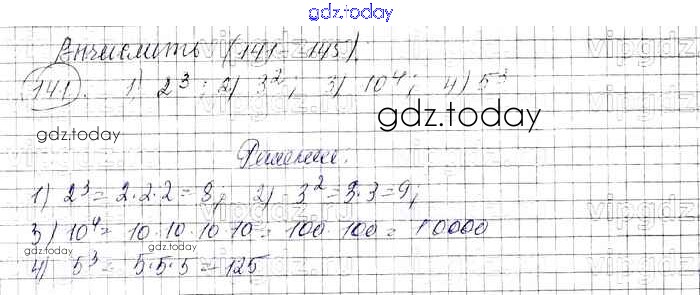 gdz.today
Вычислить (141 - 145).
141. 1) 2³; 2) 3²; 3) 10⁴; 4) 5³
gdz.today
gdz.today
Решение.
1) 2³ = 2·2·2 = 8; 2) 3² = 3·3 = 9;
3) 10⁴ = 10·10·10·10 = 100·100 = 10000
gdz.today
gdz.today
4) 5³ = 5·5·5 = 125